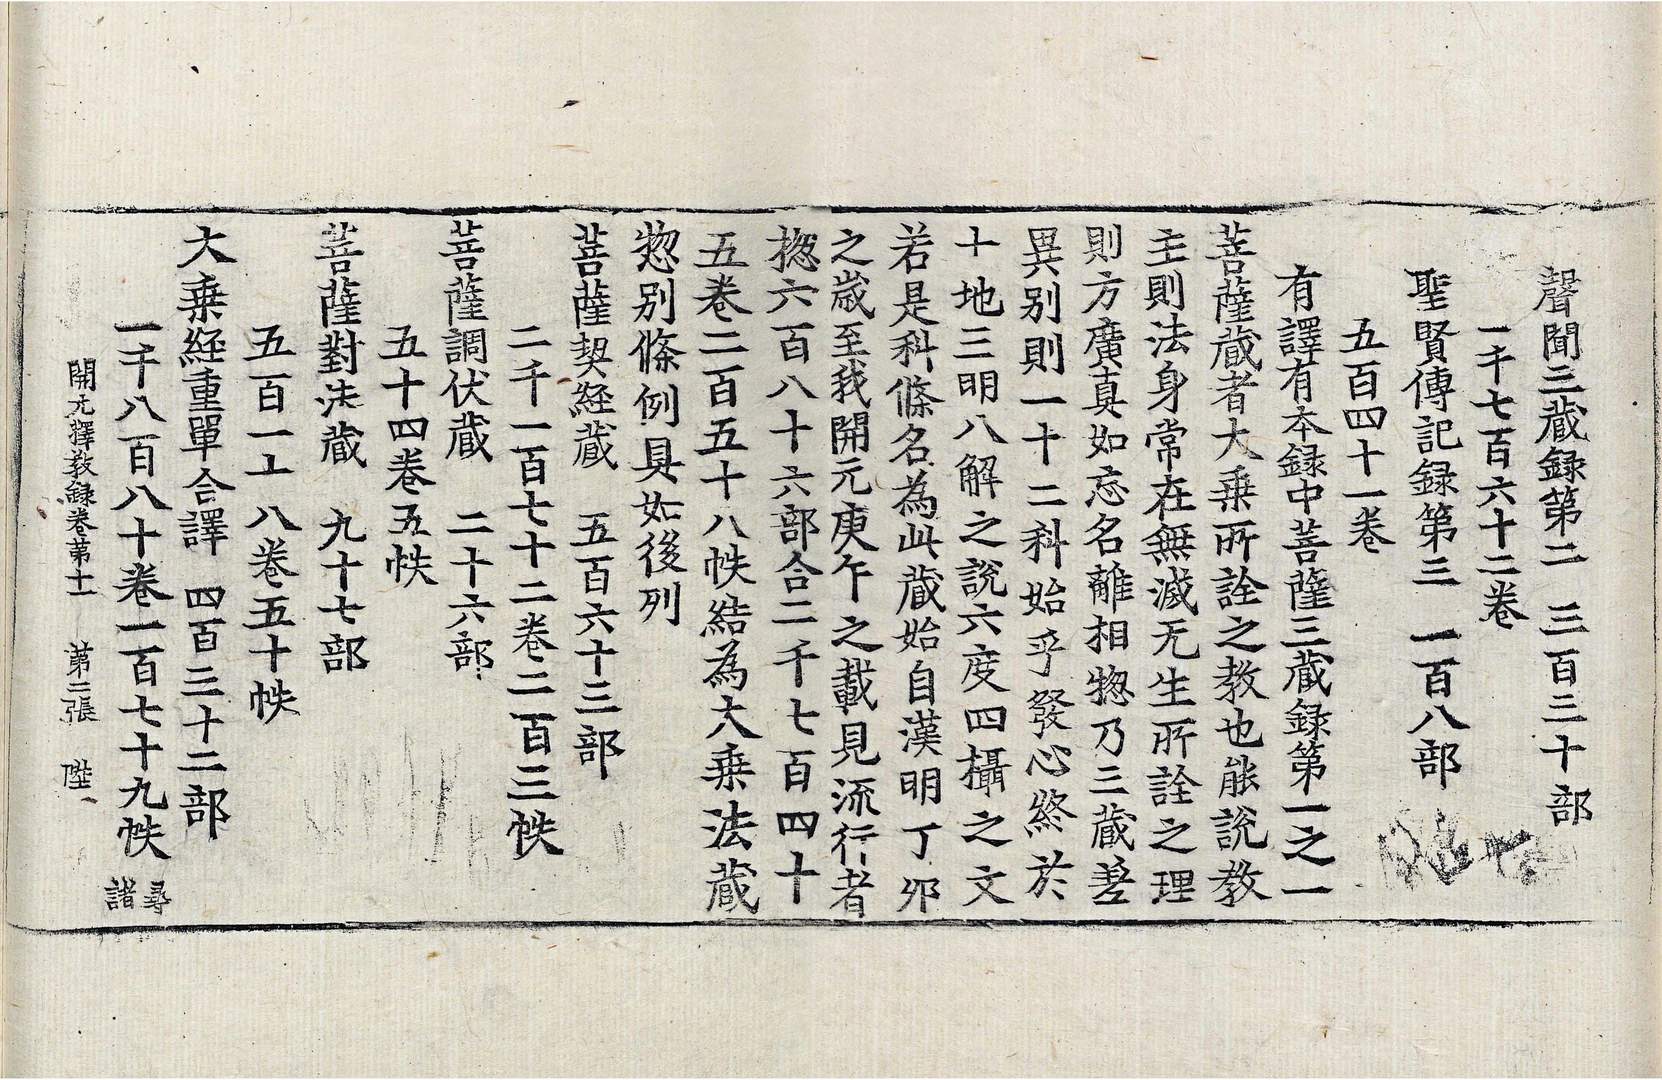 聲聞三蔵録第二　三百三十部
一千七百六十二卷
聖賢傳記録第三　一百八部
五百四十一卷
有譯有本録中菩薩三蔵録第一之一
菩薩蔵者大乗所詮之教也能說教
主則法身常在無滅无生所詮之理
則方廣真如忘名離相惣乃三蔵差
異别則一十二科始乎發心終於
十地三明八解之說六度四攝之文
若是科條名為此蔵始自漢明丁夘
之歲至我開元庚午之載見流行者
揔六百八十六部合二千七百四十
五卷二百五十八帙結為大乗法蔵
惣别條例具如後列
菩薩契経蔵　五百六十三部
二千一百七十二卷二百三帙
菩薩調伏蔵　二十六部
五十四卷五帙
菩薩對法蔵　九十七部
五百一十八卷五十帙
大乗経重單合譯　四百三十二部
一千八百八十卷一百七十九帙
尋
諸
開元釋教録卷第十一　第二張　陛